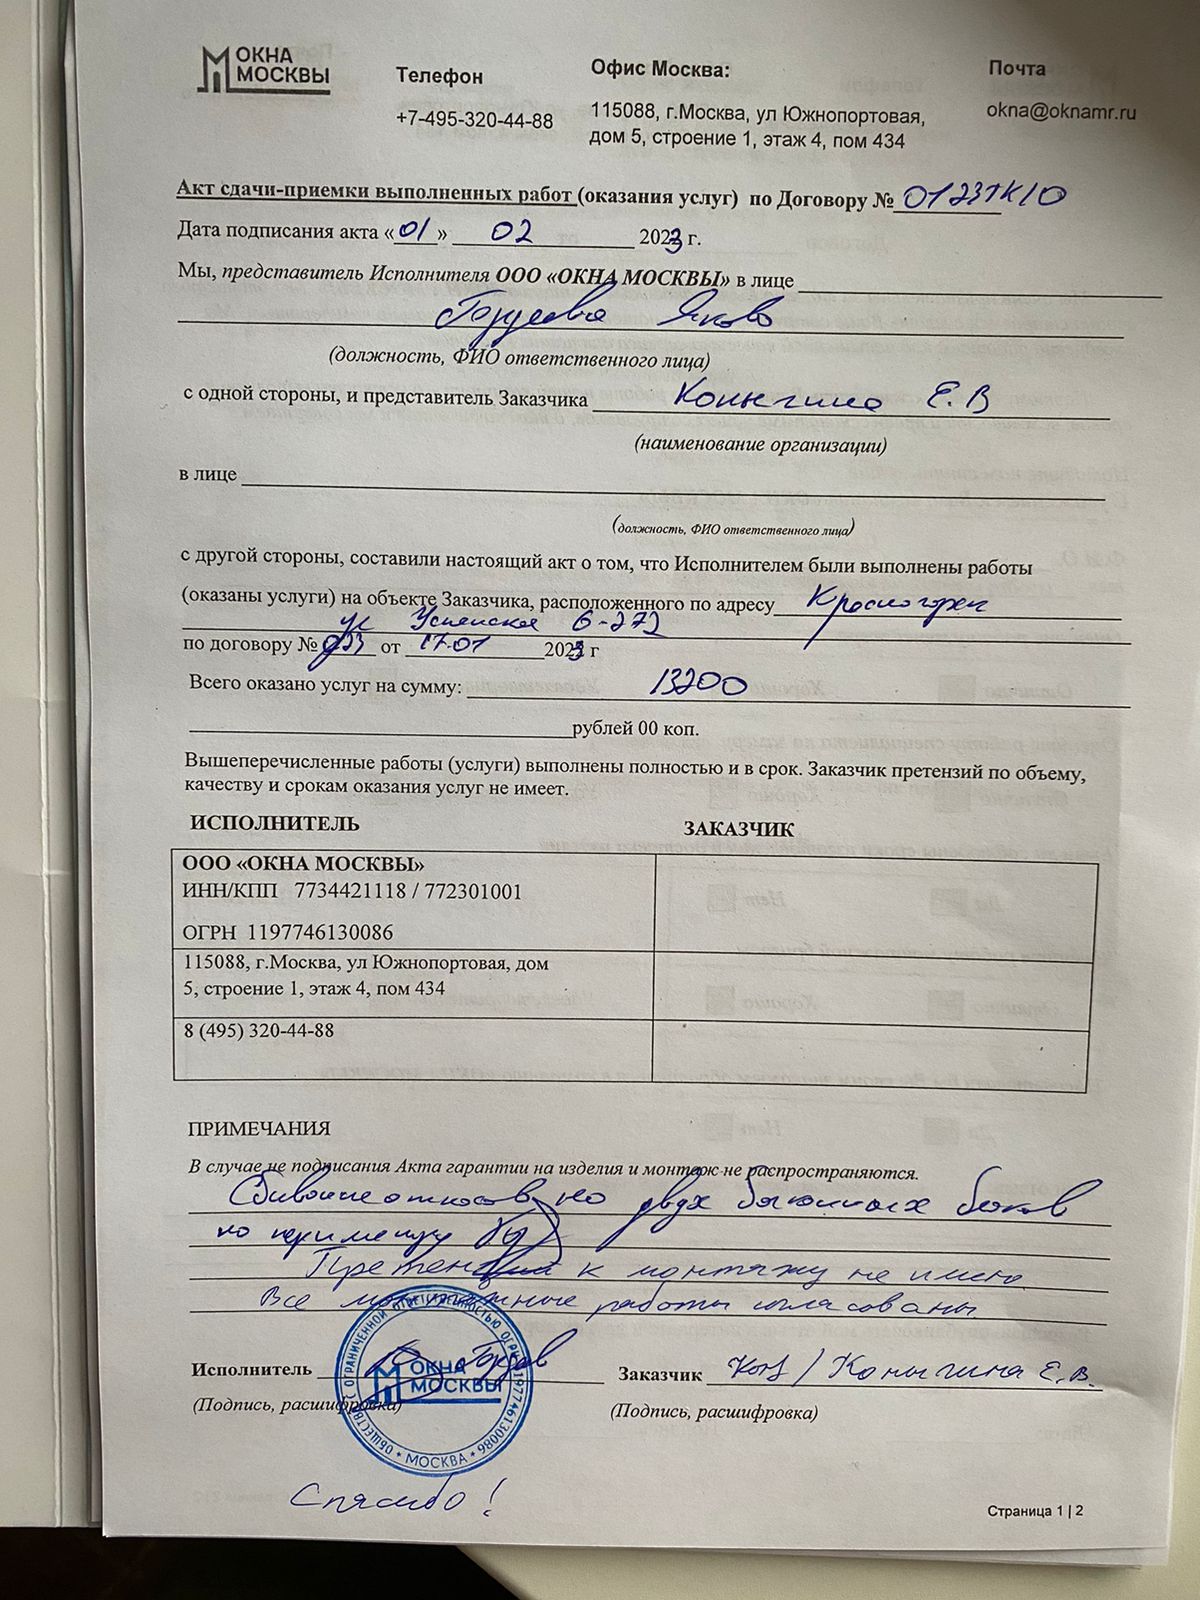 ОКНА
МОСКВЫ
Телефон
+7-495-320-44-88
Офис Москва:
115088, г.Москва, ул Южнопортовая,
дом 5, строение 1, этаж 4, пом 434
Почта
okna@oknamr.ru
Акт сдачи-приемки выполненных работ (оказания услуг) по Договору № 0123ТК10
Дата подписания акта «01» 02 2023 г.
Мы, представитель Исполнителя ООО «ОКНА МОСКВЫ» в лице
(должность, ФИО ответственного лица)
с одной стороны, и представитель Заказчика Коныгина Е.В
(наименование организации)
в лице
(должность, ФИО ответственного лица)
с другой стороны, составили настоящий акт о том, что Исполнителем были выполнены работы
(оказаны услуги) на объекте Заказчика, расположенного по адресу Красногорск
ул Успенская 6-272
по договору № 0123 от 17.01 2023 г
Всего оказано услуг на сумму: 13200
рублей 00 коп.
Вышеперечисленные работы (услуги) выполнены полностью и в срок. Заказчик претензий по объему,
качеству и срокам оказания услуг не имеет.
ИСПОЛНИТЕЛЬ
ЗАКАЗЧИК
ООО «ОКНА МОСКВЫ»
ИНН/КПП 7734421118 / 772301001
ОГРН 1197746130086
115088, г.Москва, ул Южнопортовая, дом
5, строение 1, этаж 4, пом 434
8 (495) 320-44-88
ПРИМЕЧАНИЯ
В случае не подписания Акта гарантии на изделия и монтаж не распространяются.
на двух балконных блоков
по периметру
Претензий к монтажу не имею
Все монтажные работы согласованы
Исполнитель
Заказчик Кон / Коныгина Е.В.
(Подпись, расшифровка)
(Подпись, расшифровка)
ОБЩЕСТВО С ОГРАНИЧЕННОЙ ОТВЕТСТВЕННОСТЬЮ ОГРН 1197746130086
ОКНА
МОСКВЫ
МОСКВА
Спасибо!
Страница 1 | 2